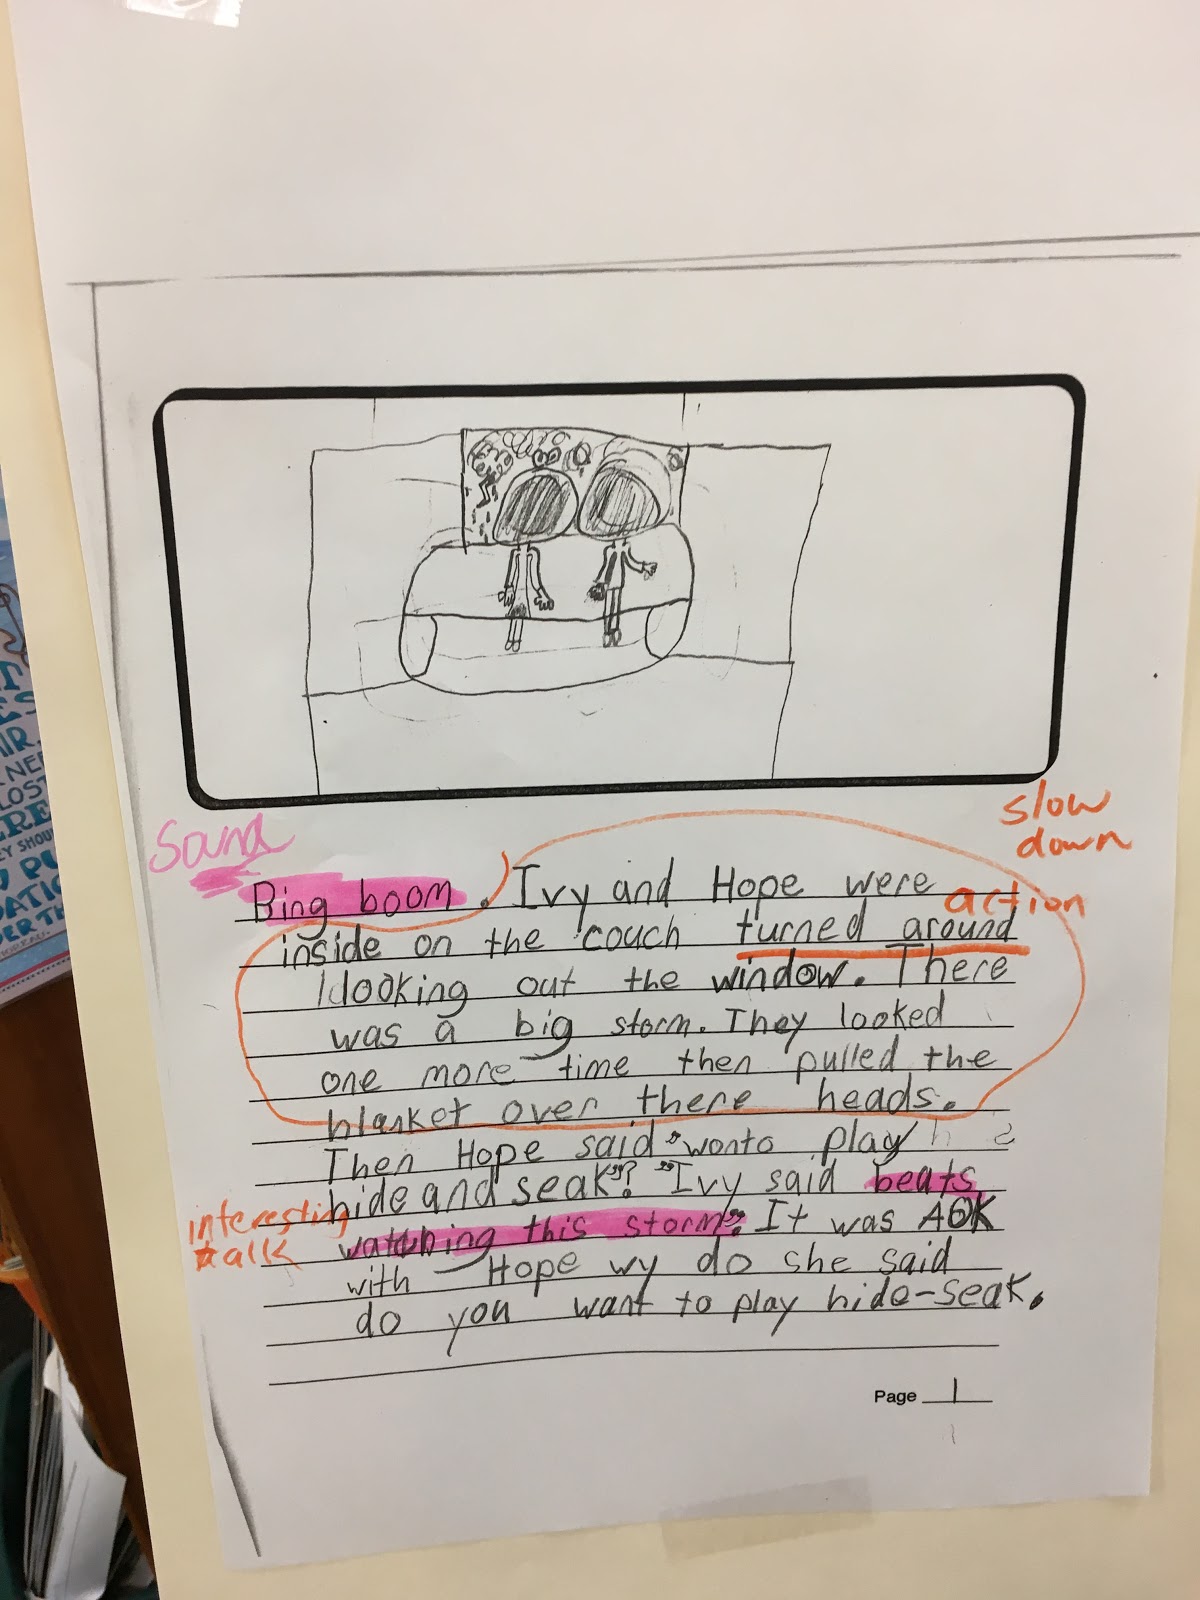 Sound
slow
down
Bing boom. Ivy and Hope were
action
inside on the couch turned around
looking out the window. There
was a big storm. They looked
one more time then pulled the
blanket over there heads.
Then Hope said "wonto play
hide and seak"? "Ivy said beats
interesting
talk
watching this storm". It was AOK
with Hope wy do she said
do you want to play hide-seak.
Page 1